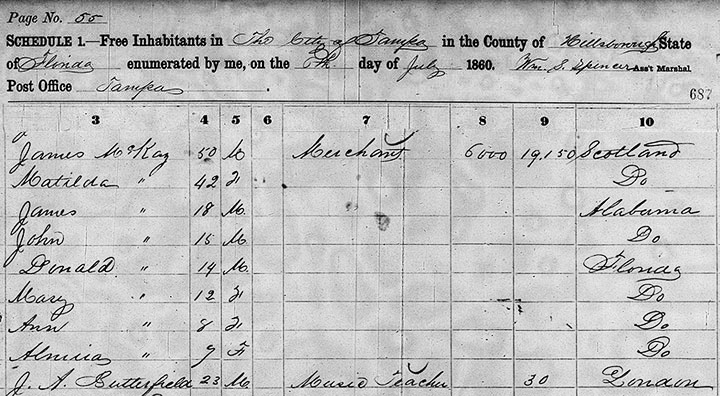 Page No. 55
SCHEDULE 1.—Free Inhabitants in The City of Tampa in the County of Hillsborough State
of Florida enumerated by me, on the 6th day of July 1860. Wm. S. Spencer Ass't Marshal
Post Office Tampa
687
3 4 5 6 7 8 9 10
James McKay 50 M Merchant 6000 19,150 Scotland
Matilda " 42 F Do
James " 18 M Alabama
John " 15 M Do
Donald " 14 M Florida
Mary " 12 F Do
Ann " 8 F Do
" F Do
J. A. Butterfield 23 M Music Teacher 30 London